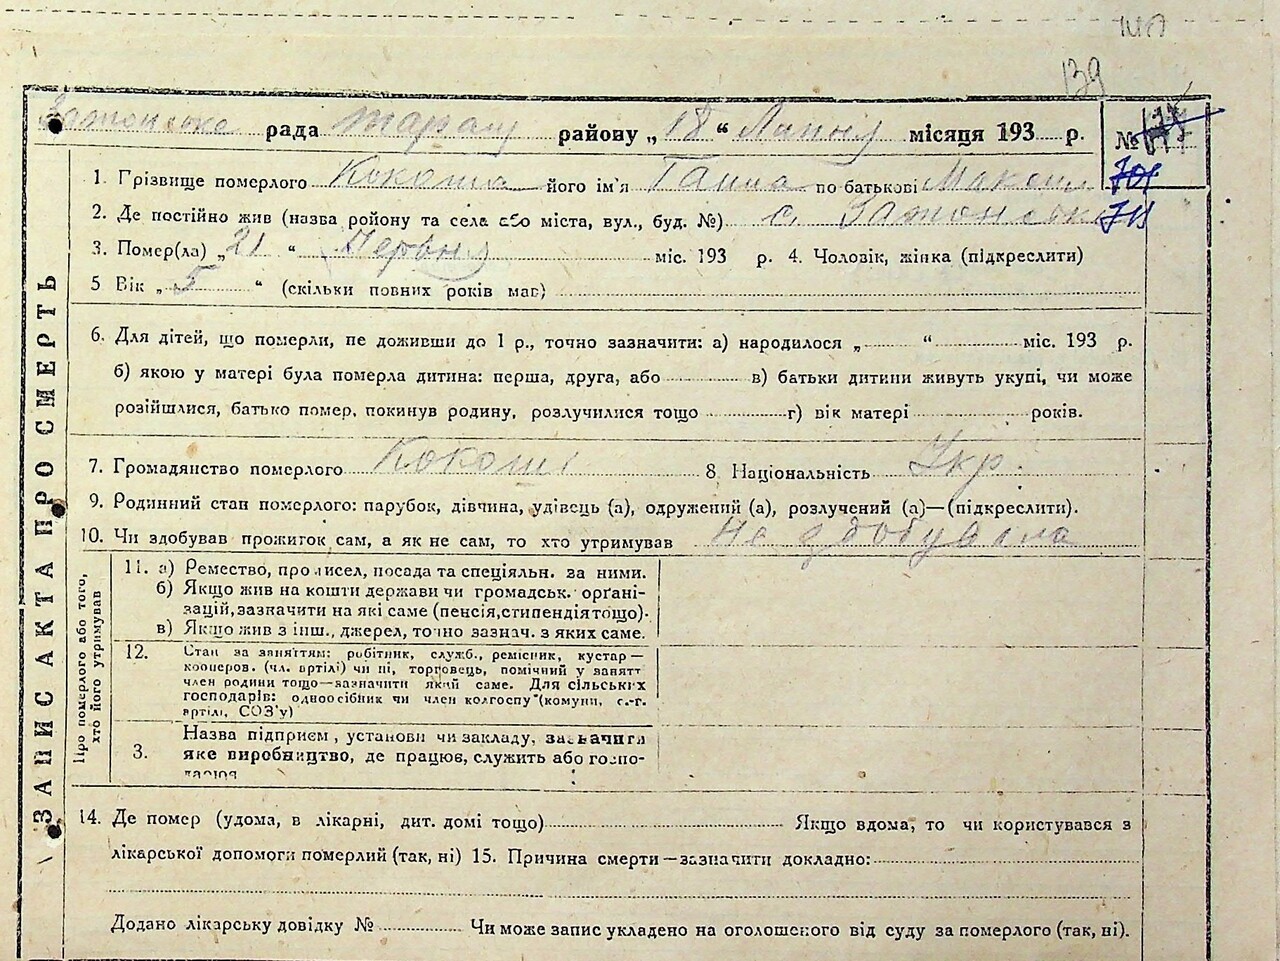 139
рада району „ 18 “ Липня місяця 193 р.
№
701
711
1. Грізвище померлого Кокоша його ім'я Ганна по батькові Максим
2. Де постійно жив (назва ройону та села або міста, вул., буд. №) с.
3. Помер(ла) „ 21 “ Червня міс. 193 р. 4. Чоловік, жінка (підкреслити)
5 Вік „ 5 “ (скільки повних років мав)
6. Для дітей, що померли, не доживши до 1 р., точно зазначити: а) народилося „ “ міс. 193 р.
б) якою у матері була померла дитина: перша, друга, або в) батьки дитини живуть укупі, чи може
розійшлися, батько помер, покинув родину, розлучилися тощо г) вік матері років.
7. Громадянство померлого 8. Національність Укр.
9. Родинний стан померлого: парубок, дівчина, удівець (а), одружений (а), розлучений (а)—(підкреслити).
10. Чи здобував прожиток сам, а як не сам, то хто утримував Не здобувала
11. а) Ремество, промисел, посада та спеціяльн. за ними.
б) Якщо жив на кошти держави чи громадськ. орґані-
зацій, зазначити на які саме (пенсія, стипендія тощо).
в) Якщо жив з інш., джерел, точно зазнач. з яких саме.
12. Стан за заняттям: робітник, служб., ремісник, кустар—
кооперов. (чл. артілі) чи ні, торговець, помічний у занятт
член родини тощо—зазначити який саме. Для сільських
господарів: одноосібник чи член колгоспу (комуни, с.-г.
артілі, СОЗ'у)
Назва підприєм, установи чи закладу, зазначити
3. яке виробництво, де працює, служить або госпо-
Про померлого або того,
хто його утримував
ЗАПИС АКТА ПРО СМЕРТЬ
14. Де помер (удома, в лікарні, дит. домі тощо) Якщо вдома, то чи користувався з
лікарської допомоги померлий (так, ні) 15. Причина смерти—зазначити докладно:
Додано лікарську довідку № Чи може запис укладено на оголошеного від суду за померлого (так, ні).